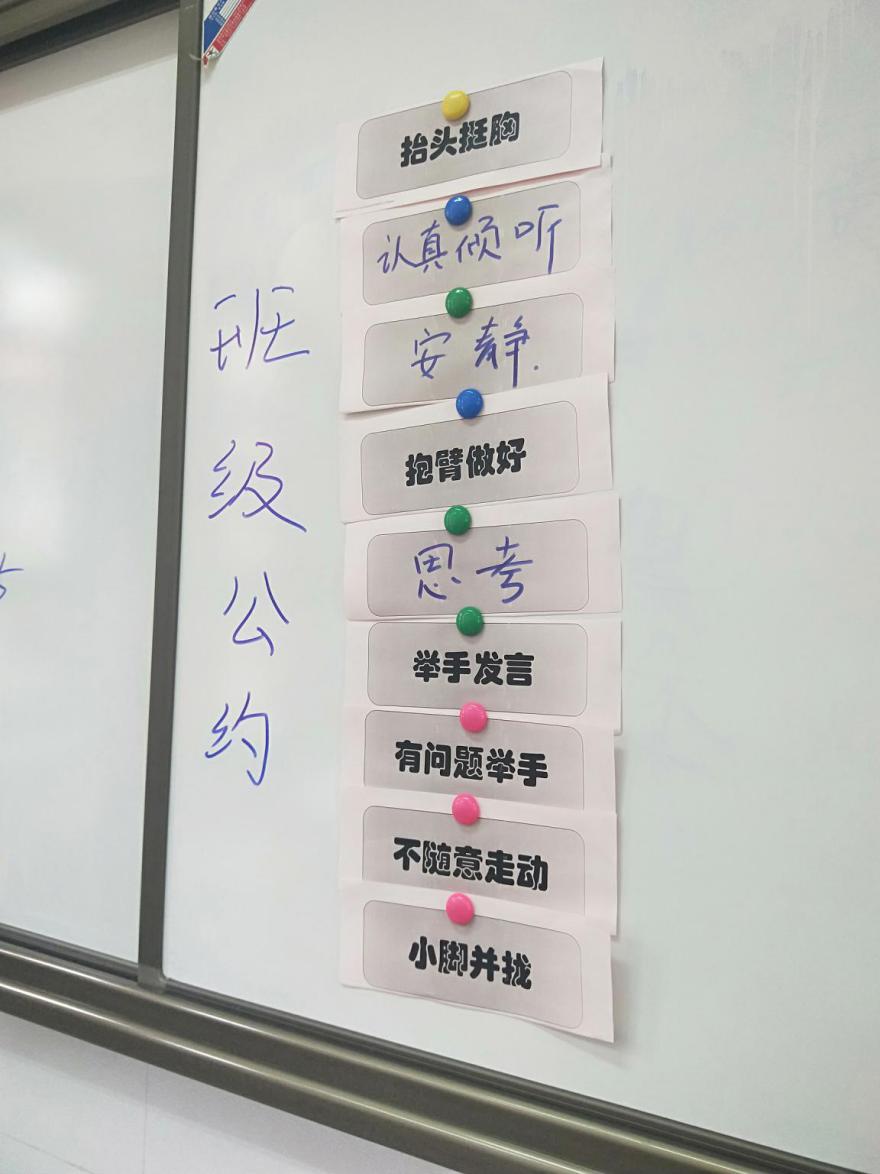 班级公约
抬头挺胸
认真倾听
安静.
抱臂做好
思考
举手发言
有问题举手
不随意走动
小脚并拢